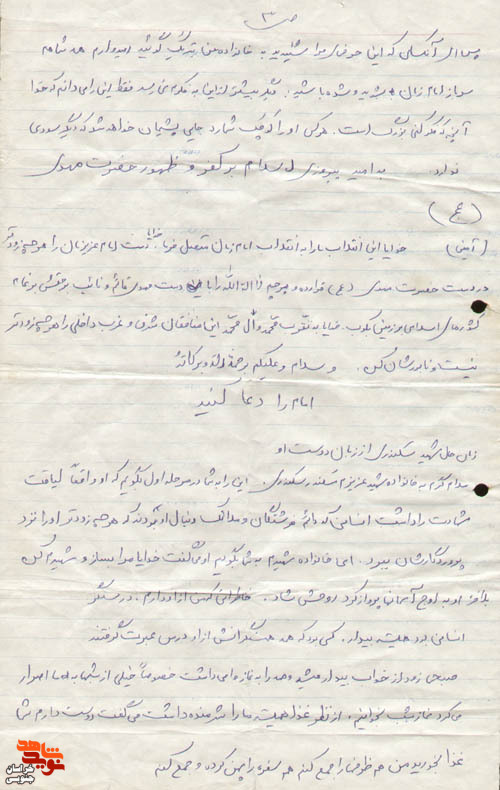 ص ۳
پس ای آنکسانی که این حرفهای مرا شنیدید به خانواده من تبریک گوئید امیدوارم همه شما
سرباز امام زمان بشوید و شده باشید. دیگر بیشتر از این به فکرم نمی رسد فقط این را می دانم که خدا
آنچه که فکر کنی بزرگ است. هر کس او را کوچک شمارد جایی پشیمان خواهد شد که دیگر سودی
ندارد. به امید پیروزی اسلام بر کفر و ظهور حضرت مهدی
(عج)
(آمین) خدایا این انقلاب ما را به انقلاب امام زمان متصل فرما. خدایا دست امام عزیزمان را هر چه زودتر
در دست حضرت مهدی (عج) قرار ده و پرچم لا اله الا الله را با دست مهدی قائم و نائب برحقش بر تمام
کشورهای اسلامی و زمین بکوب. خدایا به تقرب محمد و آل محمد این منافقان شرق و غرب داخلی را هر چه زودتر
نیست و نابودشان کن. و سلام و علیکم و رحمة الله و برکاته
امام را دعا کنید
زبان حال شهید سکندری از زبان دوست او
سلام گرم به خانواده شهید عزیزم سکندر سکندری. این را به شما در مرحله اول بگویم که او واقعاً لیاقت
شهادت را داشت انسانی که دائم فرشتگان و ملائک دنبال او بودند که هر چه زودتر او را نزد
پروردگارشان ببرد. ای خانواده شهیدم به شما بگویم او می گفت خدایا مرا بساز و شهیدم کن
بالاخره او به اوج آسمانها پرواز کرد روحش شاد. خاطراتی که من از او دارم. در سنگر
انسانی بود همیشه بیدار. کسی بود که همه سنگرانش از او درس عبرت گرفتند
صبحی زود از خواب بیدار میشد و همه را به نماز وا می داشت خصوصاً خیلی از شبها به ما اصرار
می کرد نماز شب بخوانیم. از نظر غذا همیشه ما را شرمنده داشت می گفت دوست دارم شما
غذا بخورید من هم ظرفها را جمع کنم هم سفره را پهن کرده و جمع کنم
شاهد
نوید
خراسان
جنوبی